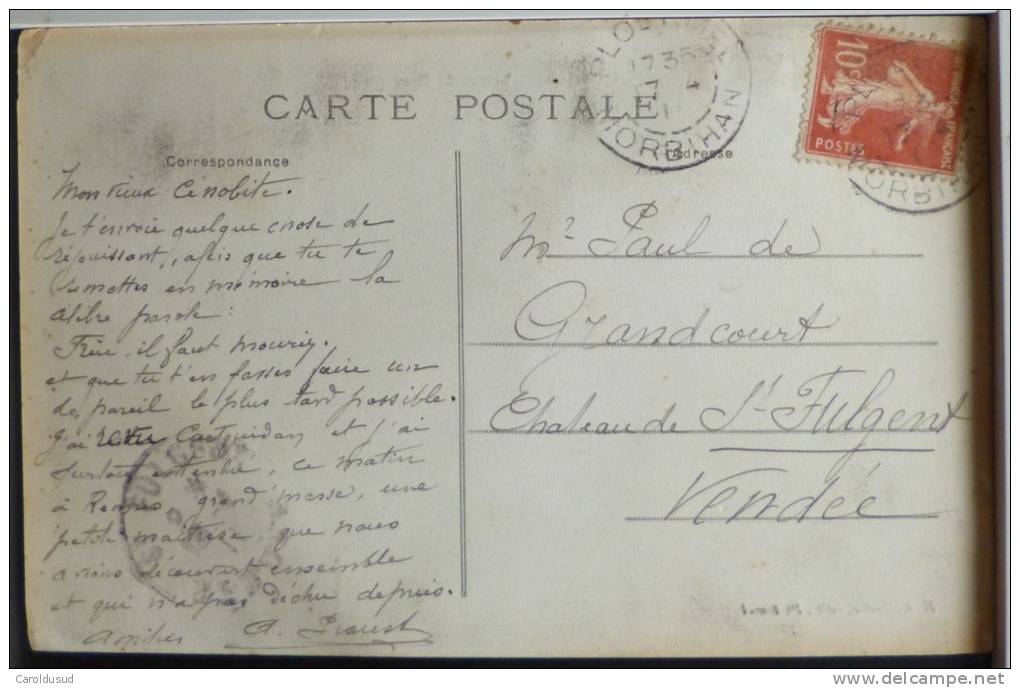 CARTE POSTALE
Correspondance
Mon vieux Cénobite.
Je t'envoie quelque chose de
réjouissant, afin que tu te
remettes en mémoire la
célèbre parole :
Frère, il faut mourir.
et que tu t'en fasses faire un
de pareil le plus tard possible.
J'ai revu Coëtquidan et j'ai
surtout entendu, ce matin
à Rennes grand'messe, une
petite maîtrise, que nous
avions découvert ensemble
et qui n'a pas déchu depuis.
Amitiés
Adresse
Mr Paul de
Grandcourt
Chateau de St Fulgent
Vendée
17 35
MORBIHAN
10c
POSTES
MORBIHAN
Caroldusud
DELCAMPE.NET